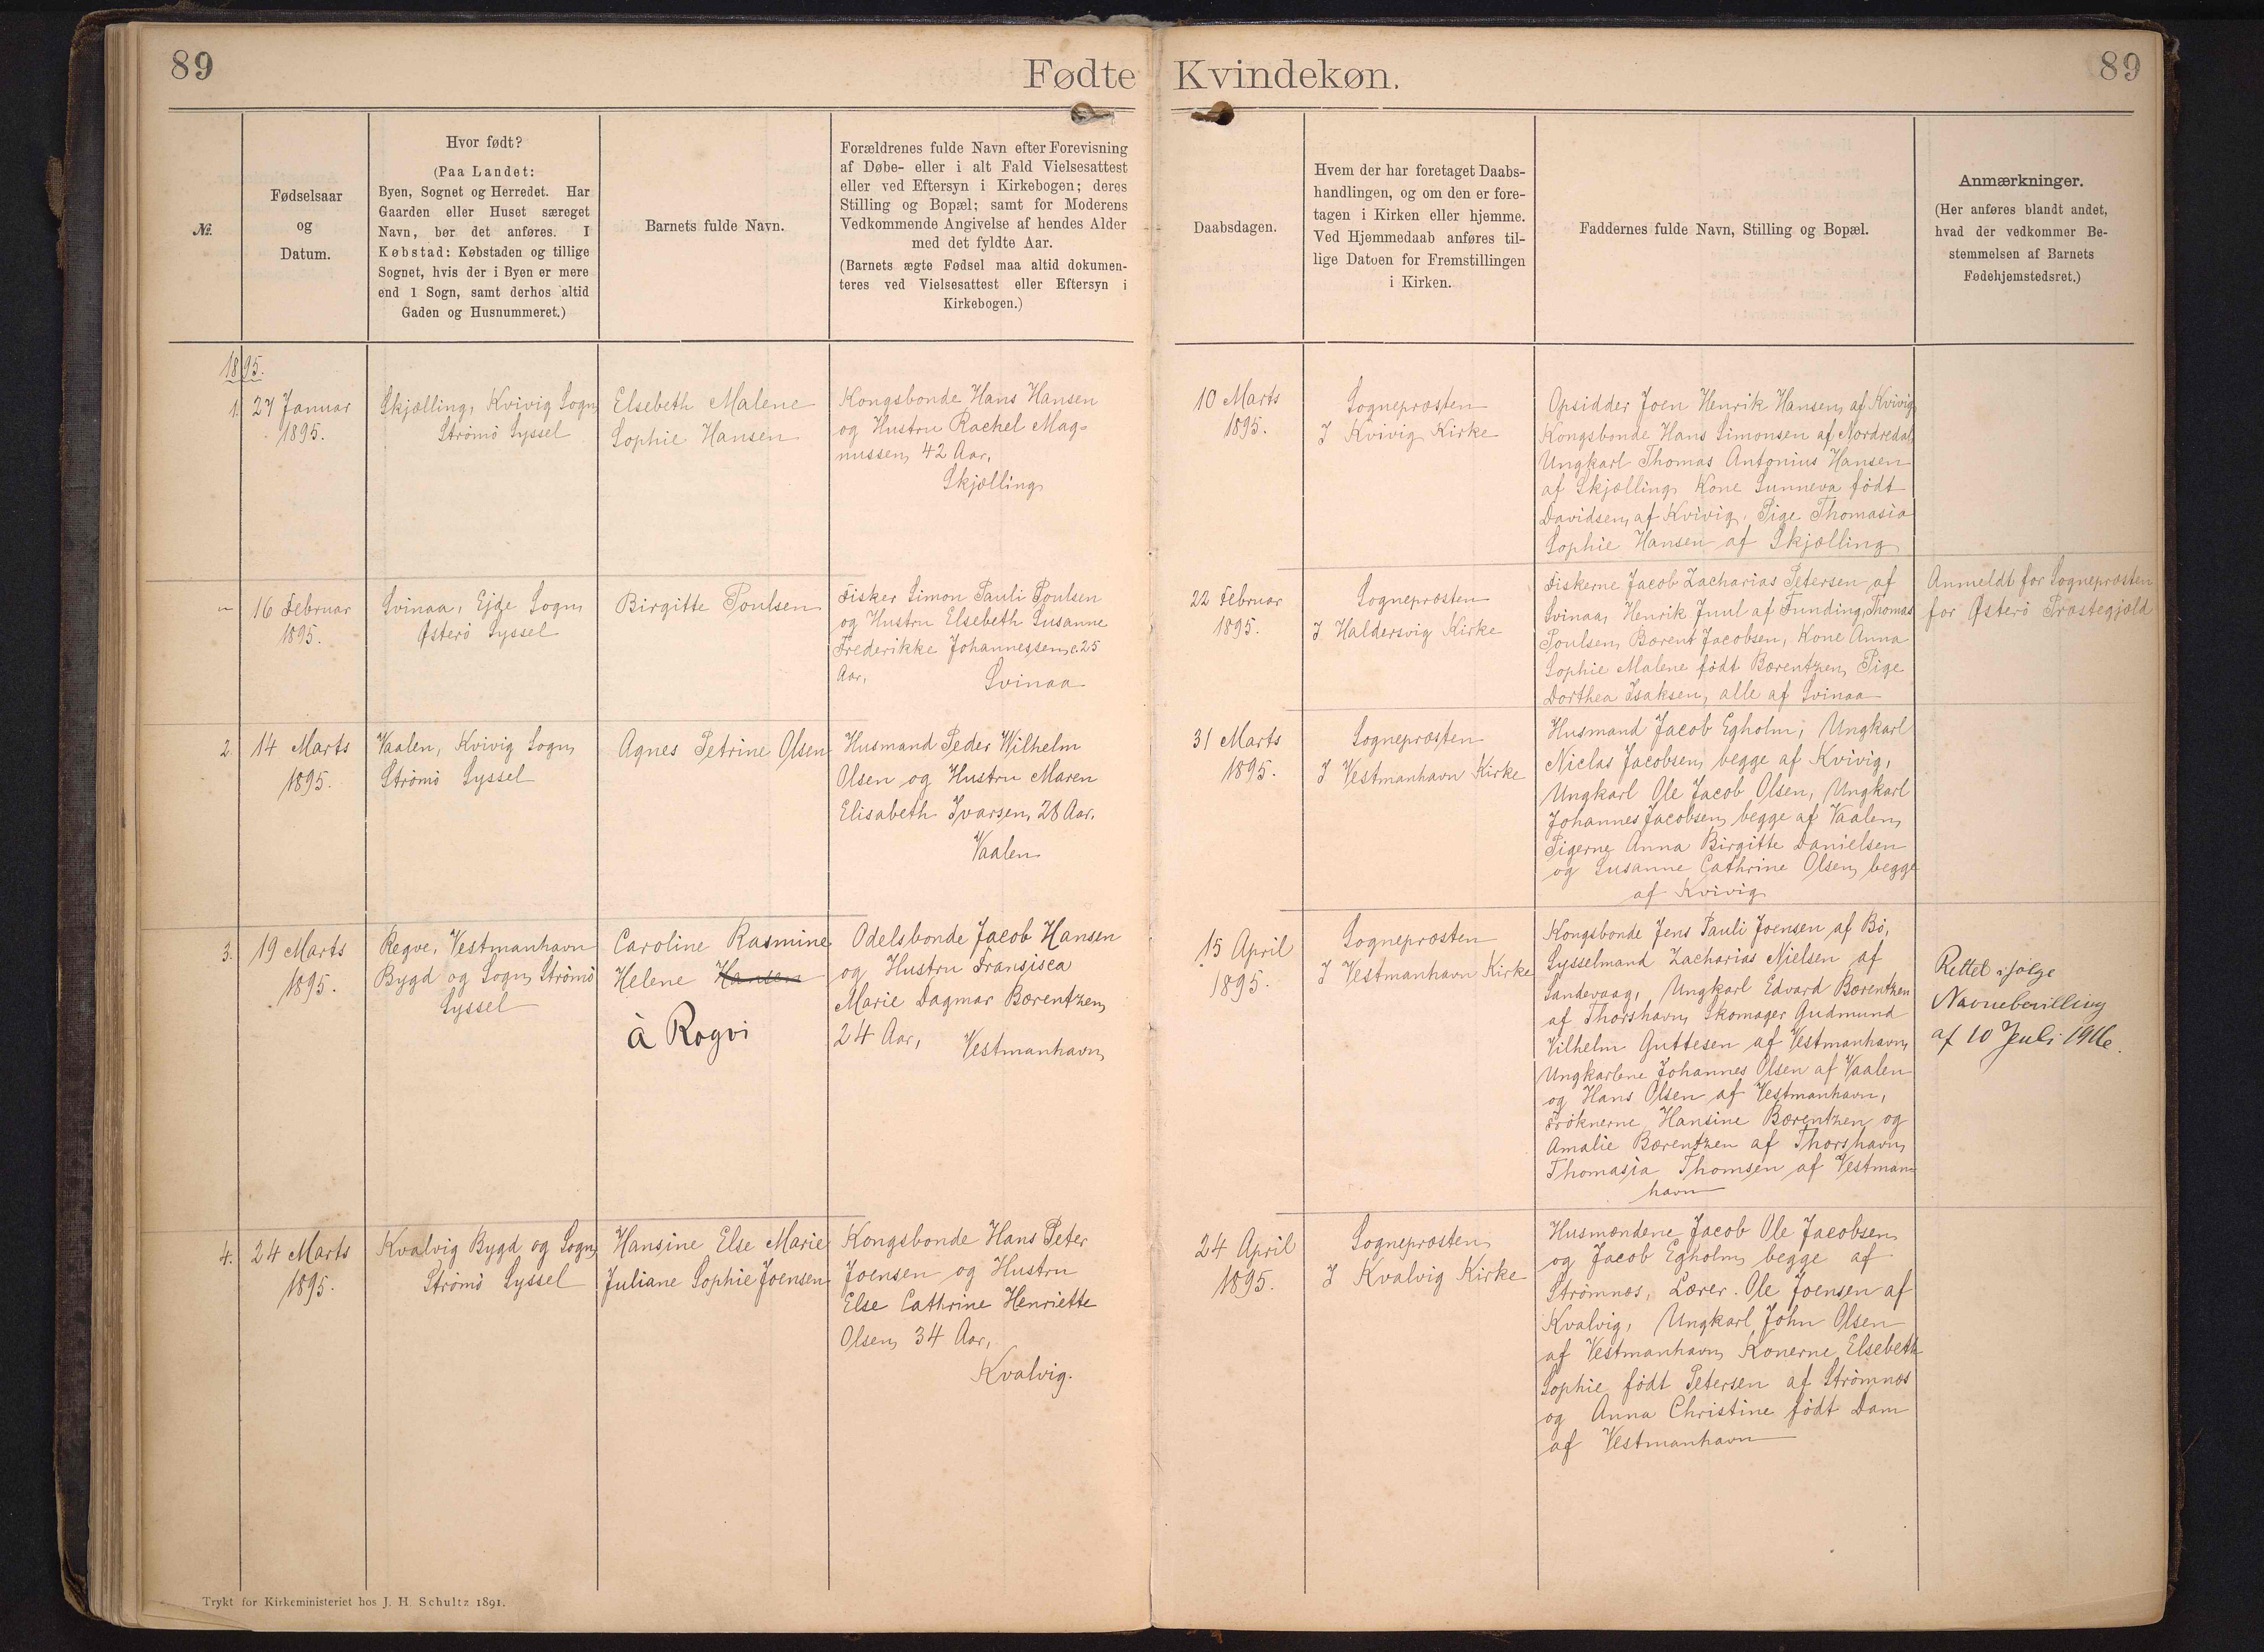 89
Fødte Kvindekøn.
89
№.
Fødselsaar
og
Datum.
Hvor født?
(Paa Landet:
Byen, Sognet og Herredet. Har
Gaarden eller Huset særeget
Navn, bør det anføres. I
Købstad: Købstaden og tillige
Sognet, hvis der i Byen er mere
end 1 Sogn, samt derhos altid
Gaden og Husnummeret.)
Barnets fulde Navn.
Forældrenes fulde Navn efter Forevisning
af Døbe- eller i alt Fald Vielsesattest
eller ved Eftersyn i Kirkebogen; deres
Stilling og Bopæl; samt for Moderens
Vedkommende Angivelse af hendes Alder
med det fyldte Aar.
(Barnets ægte Fødsel maa altid dokumen-
teres ved Vielsesattest eller Eftersyn i
Kirkebogen.)
Daabsdagen.
Hvem der har foretaget Daabs-
handlingen, og om den er fore-
tagen i Kirken eller hjemme.
Ved Hjemmedaab anføres til-
lige Datoen for Fremstillingen
i Kirken.
Faddernes fulde Navn, Stilling og Bopæl.
Anmærkninger.
(Her anføres blandt andet,
hvad der vedkommer Be-
stemmelsen af Barnets
Fødehjemstedsret.)
1895.
1.
27 Januar
1895.
Skjælling, Kvivig Sogn,
Strömö Syssel
Elsebeth Malene
Sophie Hansen
Kongsbonde Hans Hansen
og Hustru Rachel Mag=
nussen, 42 Aar,
Skjælling
10 Marts
1895.
Sognepræsten
I Kvivig Kirke
Opsidder Joen Henrik Hansen, af Kvivig
Kongsbonde Hans Simonsen af Nordredal,
Ungkarl Thomas Antonius Hansen
af Skjælling, Kone Sunneva födt
Davidsen, af Kvivig, Pige Thomasia
Sophie Hansen af Skjælling
16 Februar
1895.
Svinaa, Ejde Sogn,
Østerö Syssel
Birgitte Poulsen
Fisker Simon Pauli Poulsen
og Hustru Elsebeth Susanne
Frederikke Johannessen, c. 25
Aar,
Svinaa
22 Februar
1895.
Sognepræsten
I Haldersvig Kirke
Fiskerne Jacob Zacharias Petersen af
Svinaa, Henrik Juul af Funding, Thomas
Poulsen, Bærent Jacobsen, Kone Anna
Sophie Malene födt Bærentzen, Pige
Dorthea Isaksen, alle af Svinaa
Anmeldt for Sognepræsten
for Østerö Præstegjæld
2.
14 Marts
1895.
Vaalen, Kvivig Sogn,
Strömö Syssel
Agnes Petrine Olsen
Husmand Peder Wilhelm
Olsen og Hustru Maren
Elisabeth Ivarsen, 28 Aar,
Vaalen
31 Marts
1895.
Sognepræsten
I Vestmanhavn Kirke
Husmand Jacob Egholm, Ungkarl
Niclas Jacobsen, begge af Kvivig,
Ungkarl Ole Jacob Olsen, Ungkarl
Johannes Jacobsen, begge af Vaalen,
Pigerne Anna Birgitte Danielsen
og Susanne Cathrine Olsen, begge
af Kvivig
3.
19 Marts
1895.
Regve, Vestmanhavn
Bygd og Sogn, Strömö
Syssel
Caroline Rasmine
Helene Hansen
à Rógvi
Odelsbonde Jacob Hansen
og Hustru Fransisca
Marie Dagmar Bærentzen,
24 Aar, Vestmanhavn,
15 April
1895.
Sognepræsten
I Vestmanhavn Kirke
Kongsbonde Jens Pauli Joensen af Bö,
Sysselmand Zacharias Nielsen af
Sandevaag, Ungkarl Edvard Bærentzen
af Thorshavn, Skomager Gudmund
Vilhelm Guttesen af Vestmanhavn,
Ungkarlene Johannes Olsen af Vaalen
og Hans Olsen af Vestmanhavn,
Fröknerne Hansine Bærentzen og
Amalie Bærentzen af Thorshavn,
Thomasia Thomsen af Vestman=
havn
Rettet ifølge
Navnebevilling
af 10 Juli 1916.
4.
24 Marts
1895.
Kvalvig Bygd og Sogn,
Strömö Syssel
Hansine Else Marie
Juliane Sophie Joensen
Kongsbonde Hans Peter
Joensen og Hustru
Else Cathrine Henriette
Olsen, 34 Aar,
Kvalvig.
24 April
1895.
Sognepræsten,
I Kvalvig Kirke
Husmændene Jacob Ole Jacobsen,
og Jacob Egholm, begge af
Strömnæs, Lærer Ole Joensen af
Kvalvig, Ungkarl John Olsen
af Vestmanhavn, Konerne Elsebeth
Sophie födt Petersen af Strömnæs
og Anna Christine födt Dam
af Vestmanhavn
Trykt for Kirkeministeriet hos J. H. Schultz 1891.